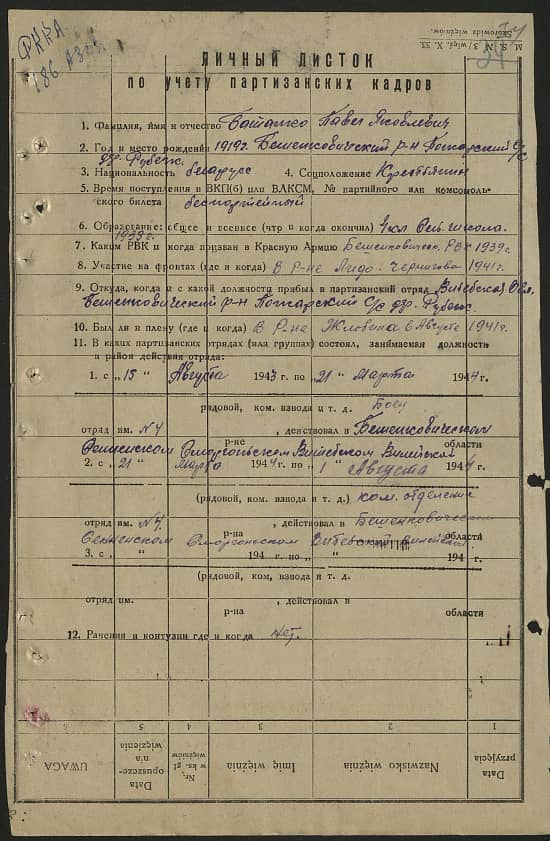 РККА
186 АЗСП
34
M. S. N. 3 / więź. X. 33.
Skorowidz więźniów.
ЛИЧНЫЙ ЛИСТОК
по учету партизанских кадров
1. Фамилия, имя и отчество Баталко Павел Яковлевич
2. Год и место рождения 1919г. Бешенковичский р-н Пожарский С/С
дер. Рубеж.
3. Национальность беларусс 4. Соцположение
5. Время поступления в ВКП(б) или ВЛКСМ, № партийного или комсомоль-
ского билета беспартейный
6. Образование: общее и военное (что и когда окончил) 4 кл Сель. школа.
1939г.
7. Каким РВК и когда призван в Красную Армию Бешенкович. РВК 1939г.
8. Участие на фронтах (где и когда) В Р-не Лидо. Чернигова 1941г.
9. Откуда, когда и с какой должности прибыл в партизанский отряд Витебская Обл.
Бешенковический р-н Пожарский С/с дер. Рубеж.
10. Был ли в плену (где и когда) В Р-не Жлобина в Августе 1941г.
11. В каких партизанских отрядах (или группах) состоял, занимаемая должность
и район действия отряда:
1. с „ 15 „ Августа 1943 г. по „ 21 „ Марта 1944 г.
рядовой, ком. взвода и т. д. Боец
отряд им. №4 , действовал в Бешенковическом
Сенненском Сморгоньском р-не Витебском Вилейской области
2. с „ 21 „ Марта 1944 г. по „ 1 „ Августа 1944 г.
(рядовой, ком. взвода и т. д.) ком. отделения
отряд им. №4. , действовал в Бешенковическом
Сенненском Сморгоньском р-на Витебской Вилейской области
3. с „ „ 194 г. по „ „ 194 г.
(рядовой, ком, взвода и т. д.
отряд им. , действовал в
р-на области
12. Ранения и контузии где и когда нет.
6 5 4 3 2 1
UWAGA Data opuszcze- nia więzienia Nr. w ks. gł. więźniów Imię więźnia Nazwisko więźnia Data przyjęcia